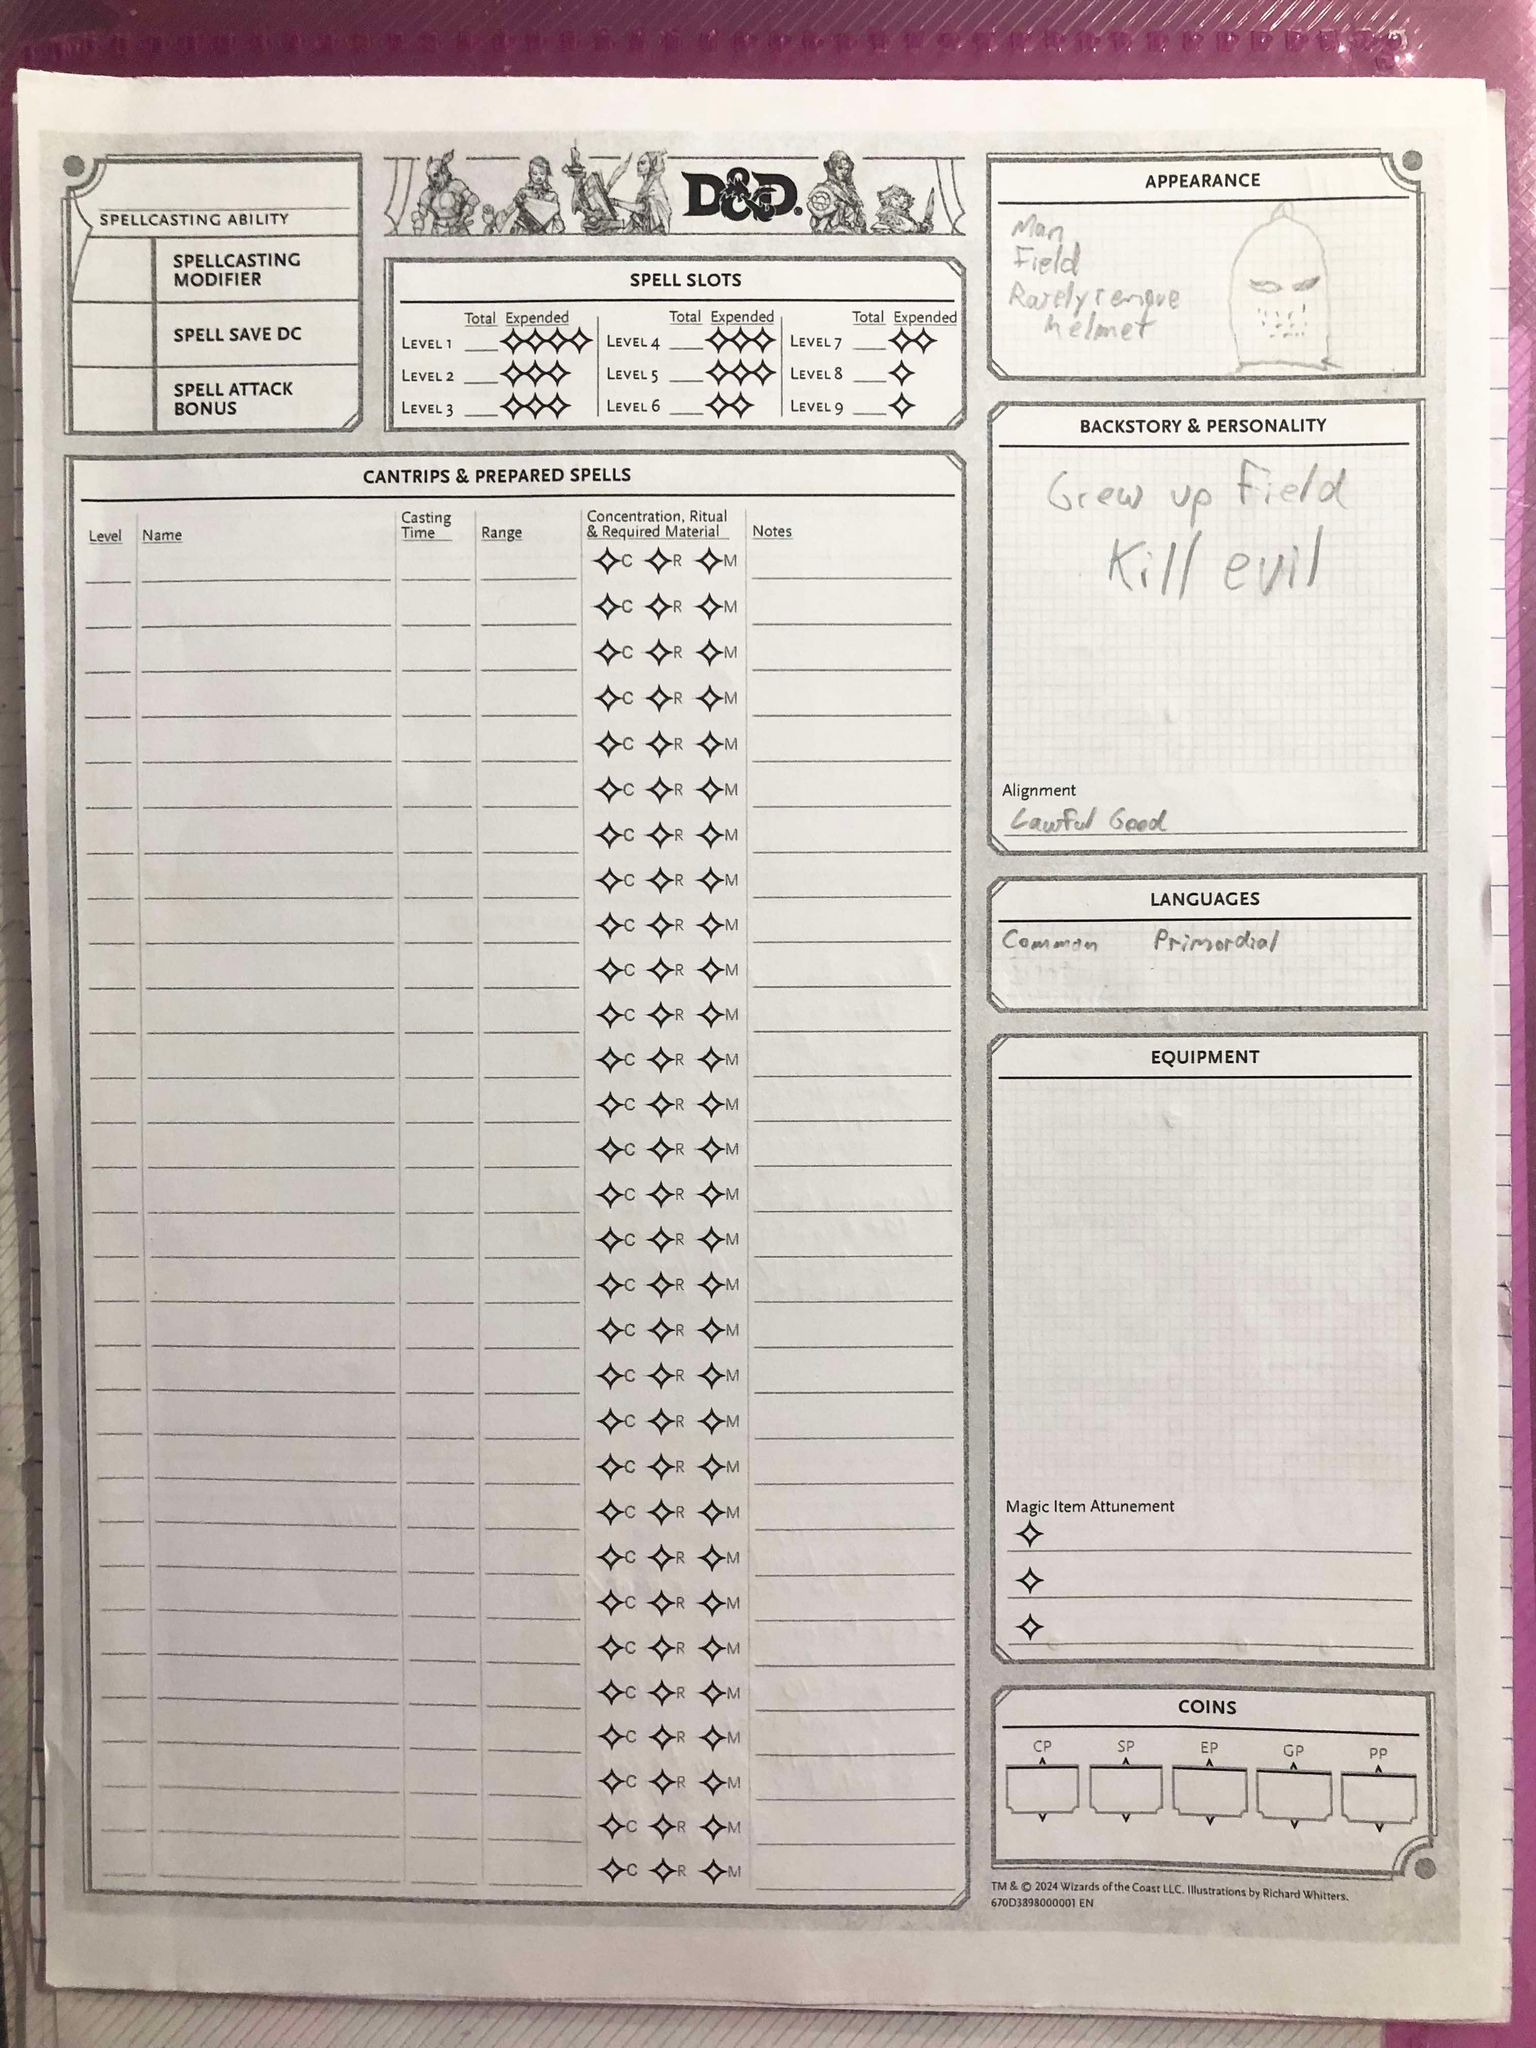 SPELLCASTING ABILITY
SPELLCASTING
MODIFIER
SPELL SAVE DC
SPELL ATTACK
BONUS
D&D.
SPELL SLOTS
Total Expended Total Expended Total Expended
LEVEL 1 LEVEL 4 LEVEL 7
LEVEL 2 LEVEL 5 LEVEL 8
LEVEL 3 LEVEL 6 LEVEL 9
CANTRIPS & PREPARED SPELLS
Level
Name
Casting
Time
Range
Concentration, Ritual
& Required Material
Notes
C R M
C R M
C R M
C R M
C R M
C R M
C R M
C R M
C R M
C R M
C R M
C R M
C R M
C R M
C R M
C R M
C R M
C R M
C R M
C R M
C R M
C R M
C R M
C R M
C R M
C R M
C R M
C R M
C R M
C R M
APPEARANCE
Man
Field
Rarely
helmet
BACKSTORY & PERSONALITY
Grew up Field
Kill evil
Alignment
Lawful Good
LANGUAGES
Common Primordial
EQUIPMENT
Magic Item Attunement
COINS
CP SP EP GP PP
TM & © 2024 Wizards of the Coast LLC. Illustrations by Richard Whitters.
670D3898000001 EN